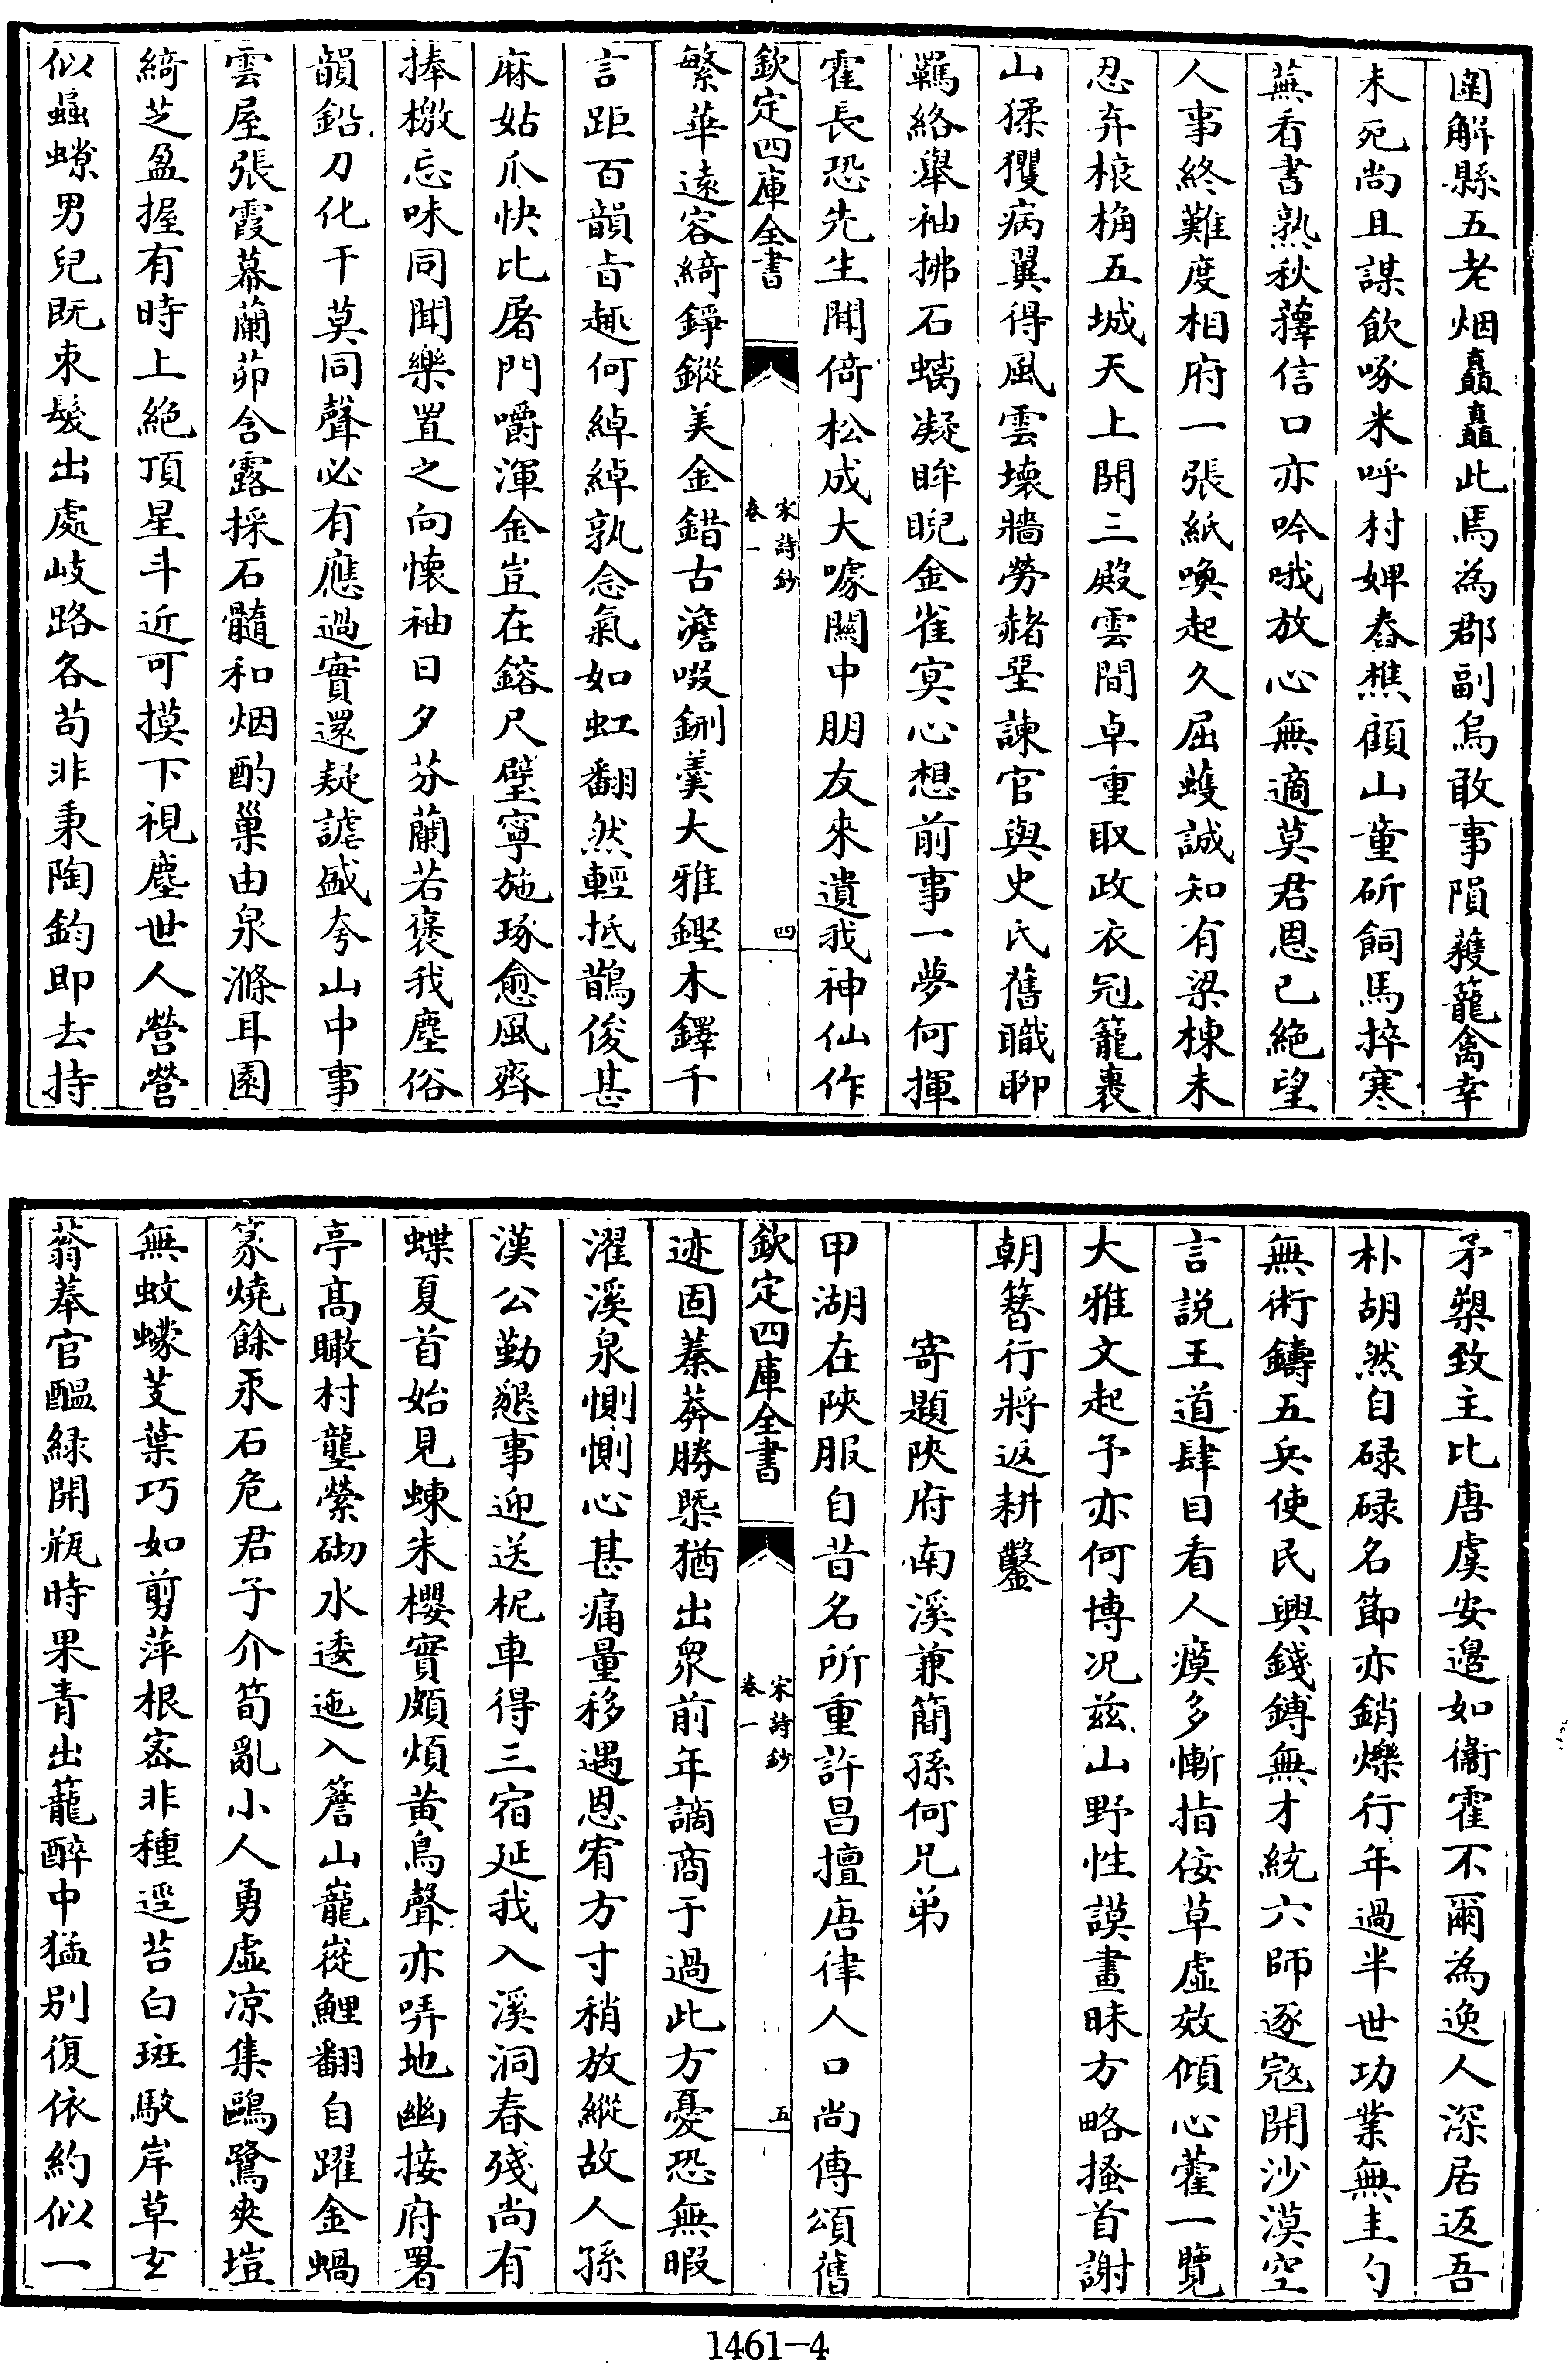 圍解縣五老烟矗矗此馬為郡副烏敢事隕穫籠禽幸
未死尚且謀飲啄米呼村婢舂樵顧山童斫飼馬捽寒
蕪看書熟秋蘀信口亦吟哦放心無適莫君恩已絶望
人事終難度相府一張紙喚起久屈蠖誠知有梁棟未
忍弃榱桷五城天上開三殿雲間卓重取政衣冠籠裹
山猱玃病翼得風雲壞牆勞赭堊諫官與史氏舊職聊
羈絡舉袖拂石螭凝眸睨金雀冥心想前事一夢何揮
霍長恐先生聞倚松成大噱關中朋友來遺我神仙作
欽定四庫全書
宋詩鈔
卷一
四
繁華遠容綺錚鏦美金錯古澹啜鉶羹大雅鏗木鐸千
言距百韻旨趣何綽綽孰念氣如虹翻然輕抵鵲俊甚
麻姑爪快比屠門嚼渾金豈在鎔尺璧寧施琢愈風齊
捧檄忘味同聞樂置之向懷袖日夕芬蘭若褒我塵俗
韻鉛刀化干莫同聲必有應過實還疑謔盛夸山中事
雲屋張霞幕蘭茆含露採石髓和烟酌巢由泉滌耳園
綺芝盈握有時上絶頂星斗近可摸下視塵世人營營
似蝨螩男兒既束髮出處岐路各茍非秉陶鈞即去持
矛槊致主比唐虞安邉如衞霍不爾為逸人深居返吾
朴胡然自碌碌名節亦銷爍行年過半世功業無圭勺
無術鑄五兵使民興錢鎛無才統六師逐冦開沙漠空
言説王道肆目看人瘼多慚指佞草虛效傾心藿一覽
大雅文起予亦何博况兹山野性謨畫昧方略搔首謝
朝簪行將返耕鑿
寄題陝府南溪兼簡孫何兄弟
甲湖在陝服自昔名所重許昌擅唐律人口尚傳頌舊
欽定四庫全書
宋詩鈔
卷一
五
迹固蓁莽勝槩猶出衆前年謫商于過此方憂恐無暇
濯溪泉惻惻心甚痛量移遇恩宥方寸稍放縱故人孫
漢公勤懇事迎送柅車得三宿延我入溪洞春殘尚有
蝶夏首始見蝀朱櫻實頗煩黄鳥聲亦哢地幽接府署
亭髙瞰村壟縈砌水逶迤入簷山巃嵸鯉翻自躍金蝸
篆燒餘汞石危君子介筍亂小人勇虛凉集鷗鷺爽塏
無蚊蠓芰葉巧如剪萍根宻非種逕苔白斑駮岸草玄
蓊菶官醖緑開瓶時果青出籠醉中猛别復依約似一
1461-4